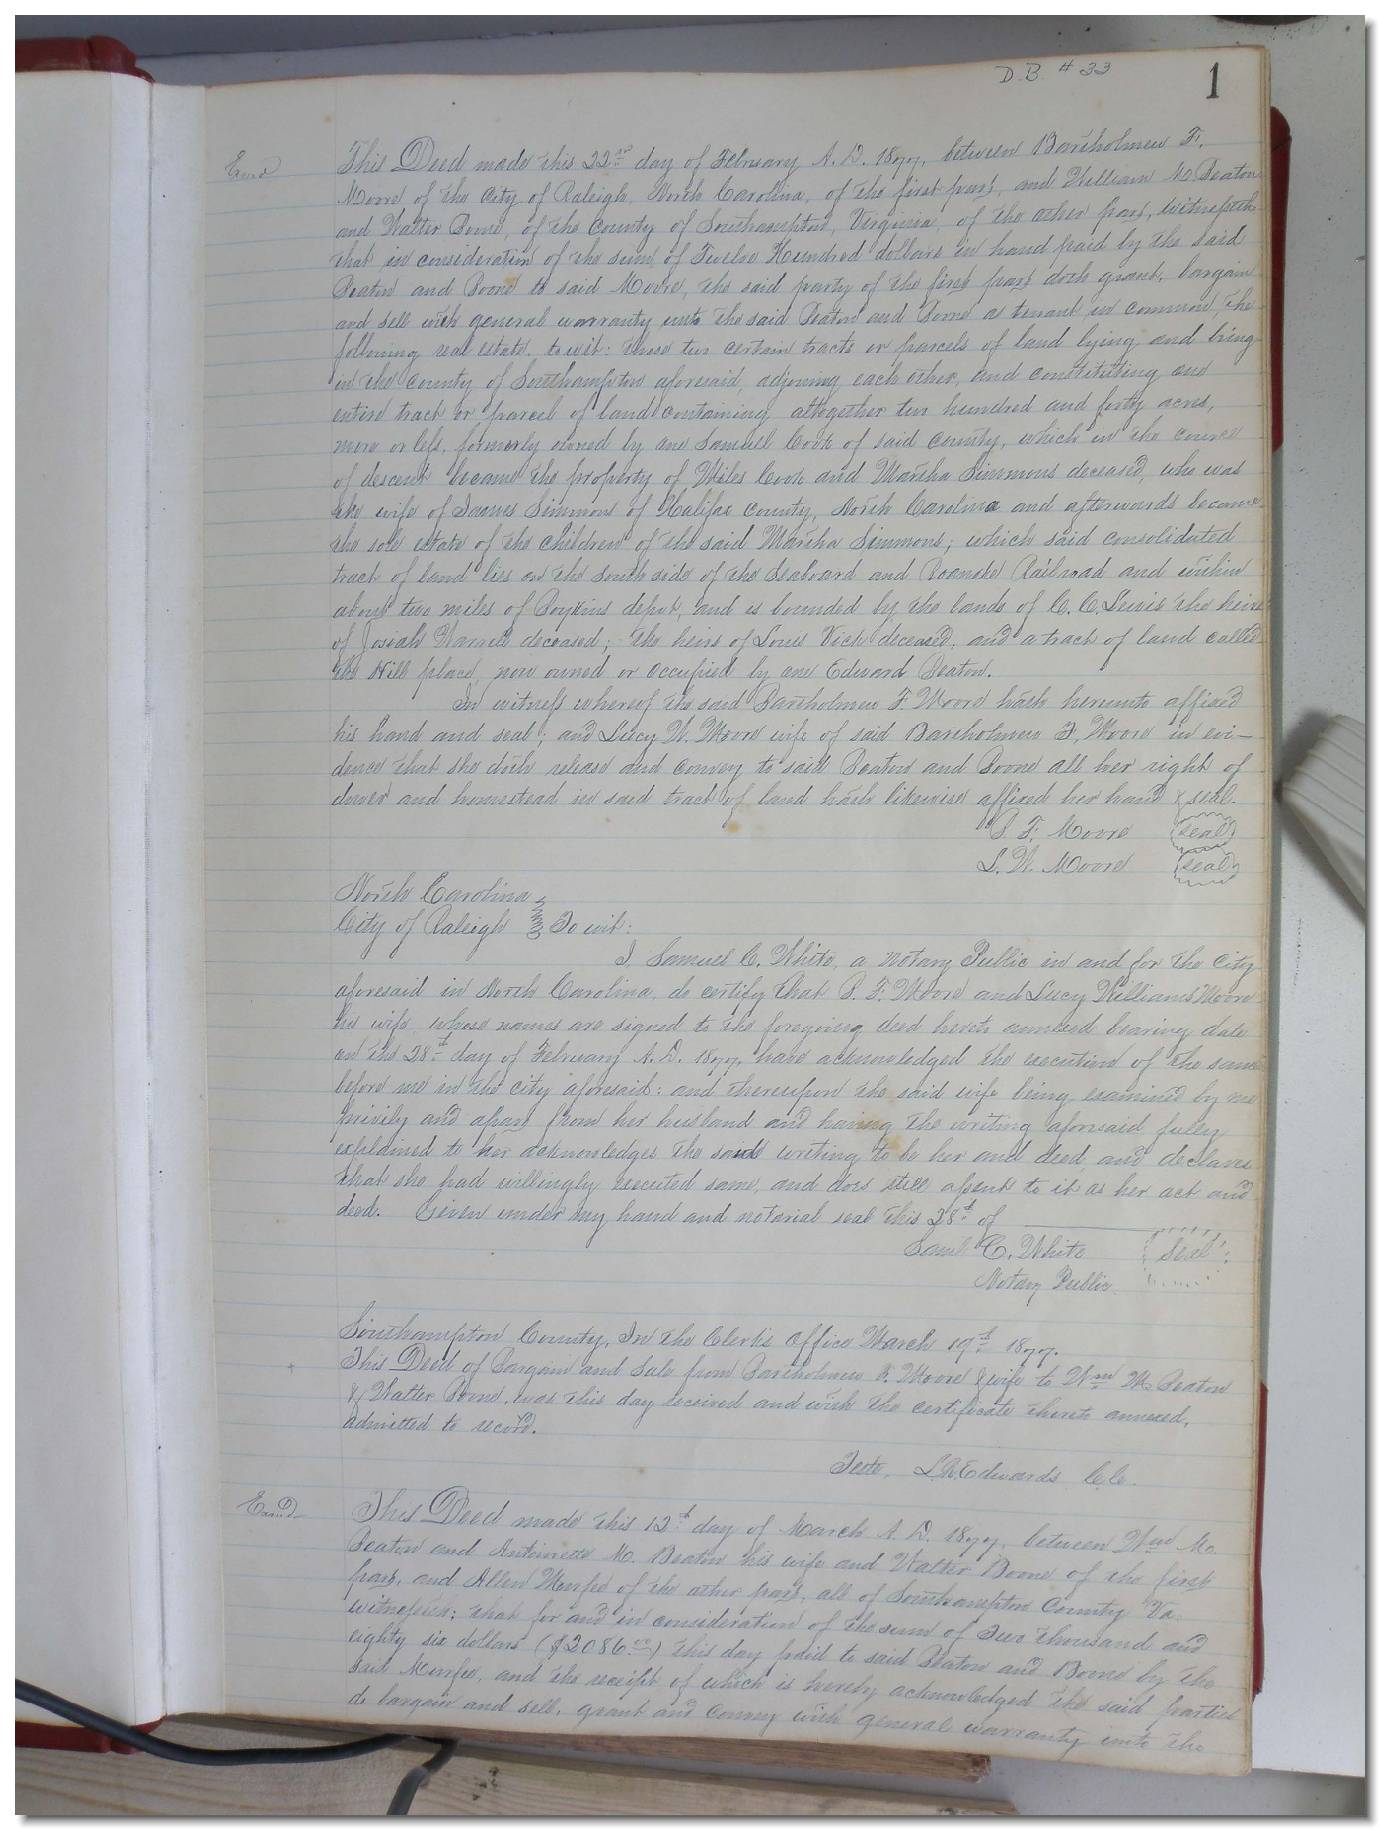 D.B. # 33
1
Exmd
This Deed made this 22nd day of February A. D. 1877, between Bartholmew F.
Moore of the City of Raleigh, North Carolina, of the first part, and William M Beaton
and Walter Boone, of the County of Southampton, Virginia, of the other part, witnesseth
that in consideration of the sum of Twelve Hundred dollars in hand paid by the said
Beaton and Boone to said Moore, the said party of the first part doth grant, bargain
and sell with general warranty unto the said Beaton and Boone as tenant in common, the
following real estate, to wit: those two certain tracts or parcels of land lying and being
in the County of Southampton aforesaid, adjoining each other, and constituting one
entire tract or parcel of land containing altogether two hundred and forty acres,
more or less, formerly owned by one Samuel Cook of said County, which in the course
of descent became the property of Miles Cook and Martha Simmons deceased, who was
the wife of James Simmons of Halifax County, North Carolina and afterwards became
the sole estate of the children of the said Martha Simmons; which said consolidated
tract of land lies on the South side of the Seaboard and Roanoke Railroad and within
about two miles of Boykins depot, and is bounded by the lands of C. C. Lewis the heirs
of Josiah deceased; the heirs of Louis Vick deceased, and a tract of land called
the Hill place, now owned or occupied by one Edward Beaton.
In witness whereof the said Bartholmew F. Moore hath hereunto affixed
his hand and seal; and Lucy W. Moore wife of said Bartholmew F. Moore in evi-
dence that she doth release and convey to said Beaton and Boone all her right of
dower and homestead in said tract of land hath likewise affixed her hand & seal.
B. F. Moore (seal)
L. W. Moore (seal)
North Carolina
City of Raleigh } To wit:
I, Samuel C. White, a Notary Public in and for the City
aforesaid in North Carolina, do certify that B. F. Moore and Lucy Williams Moore
his wife, whose names are signed to the foregoing deed hereto annexed bearing date
on the 28th day of February A. D. 1877, have acknowledged the execution of the same
before me in the city aforesaid: and thereupon the said wife being examined by me
privily and apart from her husband and having the writing aforesaid fully
explained to her acknowledges the said writing to be her and deed, and declares
that she had willingly executed same, and does still assent to it as her act and
deed. Given under my hand and notarial seal this 28th of
Saml C. White (Seal)
Notary Public
Southampton County, In the Clerk's Office March 19th 1877.
This Deed of Bargain and Sale from Bartholmew F. Moore & wife to Wm M. Beaton
& Walter Boone, was this day received and with the certificate thereto annexed,
admitted to record.
Teste, L.R. Edwards C.C.
Exmd
This Deed made this 12th day of March A. D. 1877, between Wm M.
Beaton and Antoinette M. Beaton his wife and Walter Boone of the first
part, and Allen Murfee of the other part, all of Southampton County Va.
witnesseth; that for and in consideration of the sum of Two thousand and
eighty six dollars ($2086.00) this day paid to said Beaton and Boone by the
said Murfee, and the receipt of which is hereby acknowledged the said parties
do bargain and sell, grant and convey with general warranty unto the